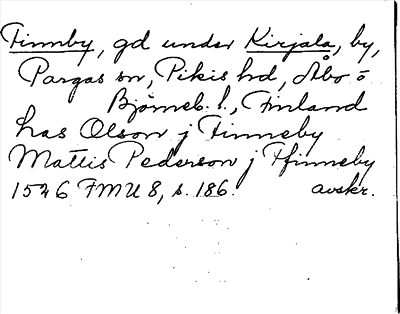 Finnby, gd under Kirjala, by,
Pargas sn, Pikis hd, Åbo o
Björneb. l., Finland
has Olson j Finneby
Mattis Pederson j Ffinneby
1546 FMU 8, s. 186. avskr.